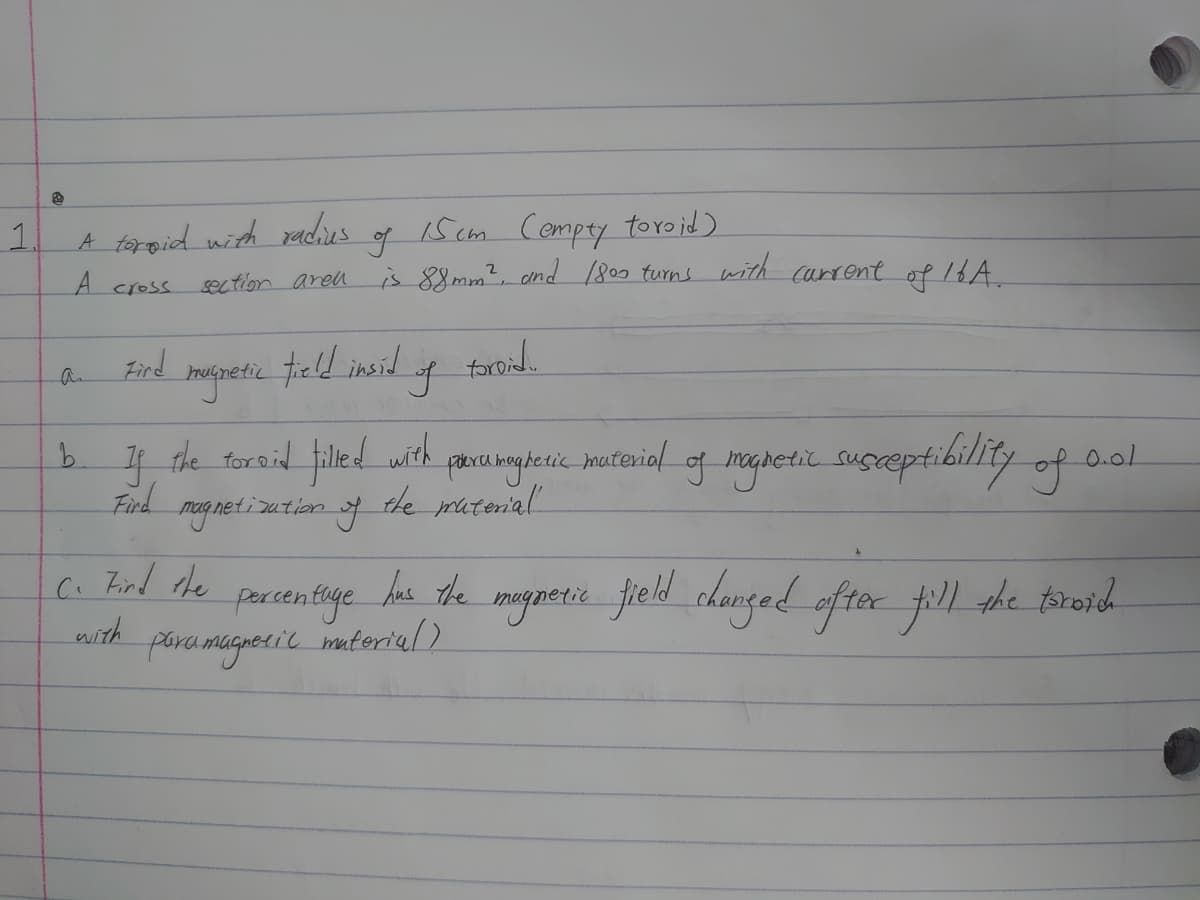 1. A toroid with radius of 15cm (empty toroid)
A cross section area is 88mm², and 1800 turns with current of 16A.
a. Find magnetic field insid of toroid.
b. If the toroid filled with paramagnetic material of magnetic susceptibility of 0.01
Find magnetization of the material
c. Find the percentage has the magnetic field changed after fill the toroid
with paramagnetic material)